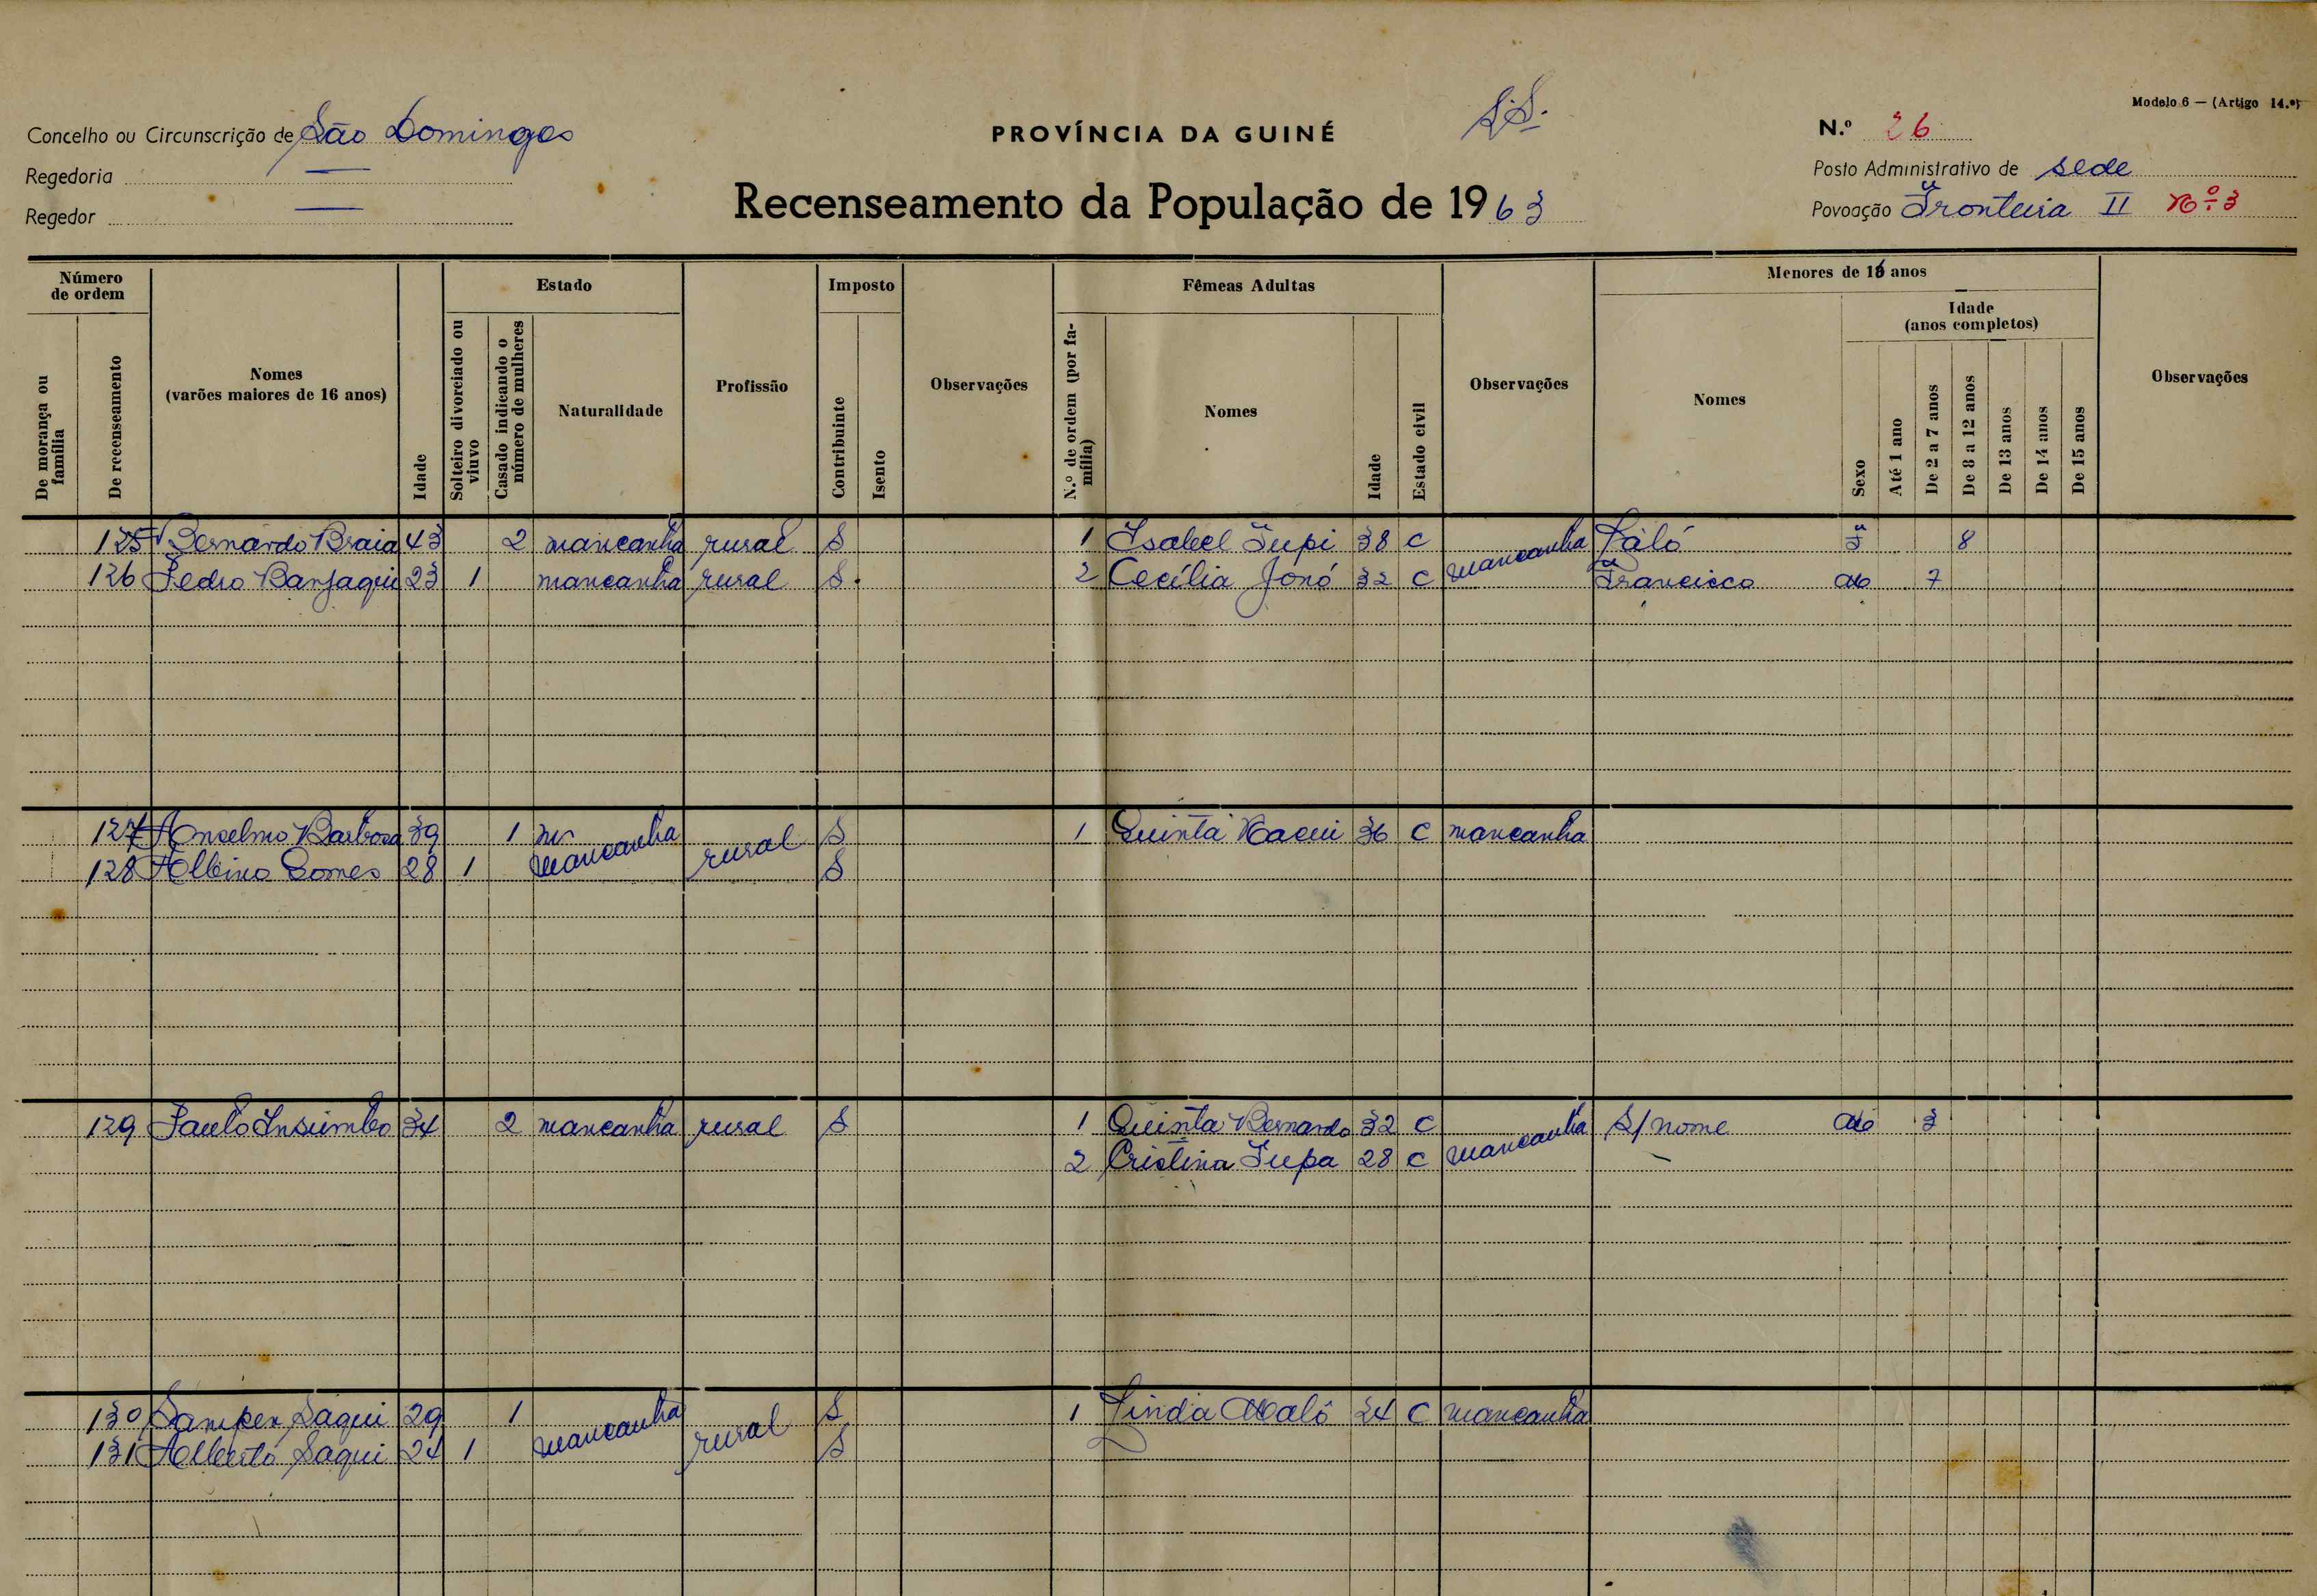 Modelo 6 — (Artigo 14.º)
Concelho ou Circunscrição de São Domingos
PROVÍNCIA DA GUINÉ
N.º 26
Regedoria —
Posto Administrativo de sede
Regedor —
Recenseamento da População de 1963
Povoação Fronteira II Nº 3
Número de ordem
Estado
Imposto
Fêmeas Adultas
Menores de 16 anos
Idade (anos completos)
De morança ou família
De recenseamento
Nomes (varões maiores de 16 anos)
Idade
Solteiro divorciado ou viuvo
Casado indicando o número de mulheres
Naturalidade
Profissão
Contribuinte
Isento
Observações
N.º de ordem (por família)
Nomes
Idade
Estado civil
Observações
Nomes
Sexo
Até 1 ano
De 2 a 7 anos
De 8 a 12 anos
De 13 anos
De 14 anos
De 15 anos
Observações
125 Bernardo Braia 43 2 mancanha rural S 1 Isabel Tupi 38 C mancanha Páló F 8
126 Pedro Banjaqui 23 1 mancanha rural S. 2 Cecília Jonó 32 C Francisco M 7
127 Anselmo Barbosa 39 1 mancanha rural S 1 Quinta Nacui 36 C mancanha
128 Albino Gomes 28 1 S
129 Paulo Insumbo 34 2 mancanha rural S 1 Quinta Bernardo 32 C mancanha S/nome M 3
2 Cristina Tupa 28 C
130 Sampen Saqui 29 1 mancanha rural S 1 Linda Maló 24 C mancanha
131 Alberto Saqui 24 1 S